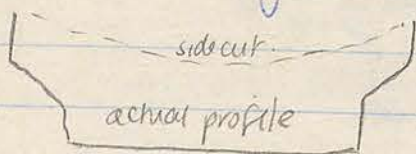 sidecut.
actual profile